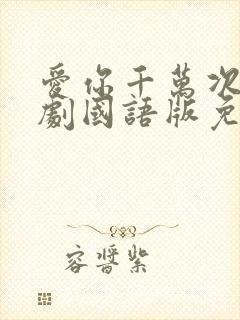 愛你千萬次
劇國語版免
容醬紫